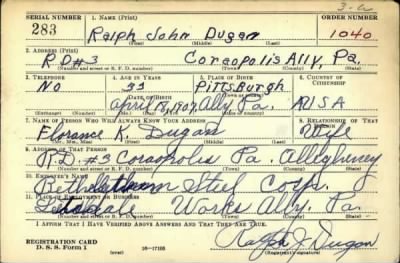 3-a
SERIAL NUMBER 1. NAME (Print) ORDER NUMBER
283 Ralph John Dugan 1040
(First) (Middle) (Last)
2. ADDRESS (Print)
R.D #3 Coraopolis Ally, Pa.
(Number and street or R. F. D. number) (Town) (County) (State)
3. TELEPHONE 4. AGE IN YEARS 5. PLACE OF BIRTH 6. COUNTRY OF CITIZENSHIP
No 33 Pittsburgh
DATE OF BIRTH
April 18, 1907 Ally, Pa. USA
(Exchange) (Number) (Mo.) (Day) (Yr.) (State or country)
7. NAME OF PERSON WHO WILL ALWAYS KNOW YOUR ADDRESS 8. RELATIONSHIP OF THAT PERSON
Florance K. Dugan Wife
(Mr., Mrs., Miss) (First) (Middle) (Last)
9. ADDRESS OF THAT PERSON
R.D. #3 Coraopolis Pa. Alleghney
(Number and street or R. F. D. number) (Town) (County) (State)
10. EMPLOYER'S NAME
Steel Corp.
11. PLACE OF EMPLOYMENT OR BUSINESS
Works Ally. Pa.
(Number and street or R. F. D. number) (Town) (County) (State)
I AFFIRM THAT I HAVE VERIFIED ABOVE ANSWERS AND THAT THEY ARE TRUE.
REGISTRATION CARD
D. S. S. Form 1 16-17105 Ralph J. Dugan